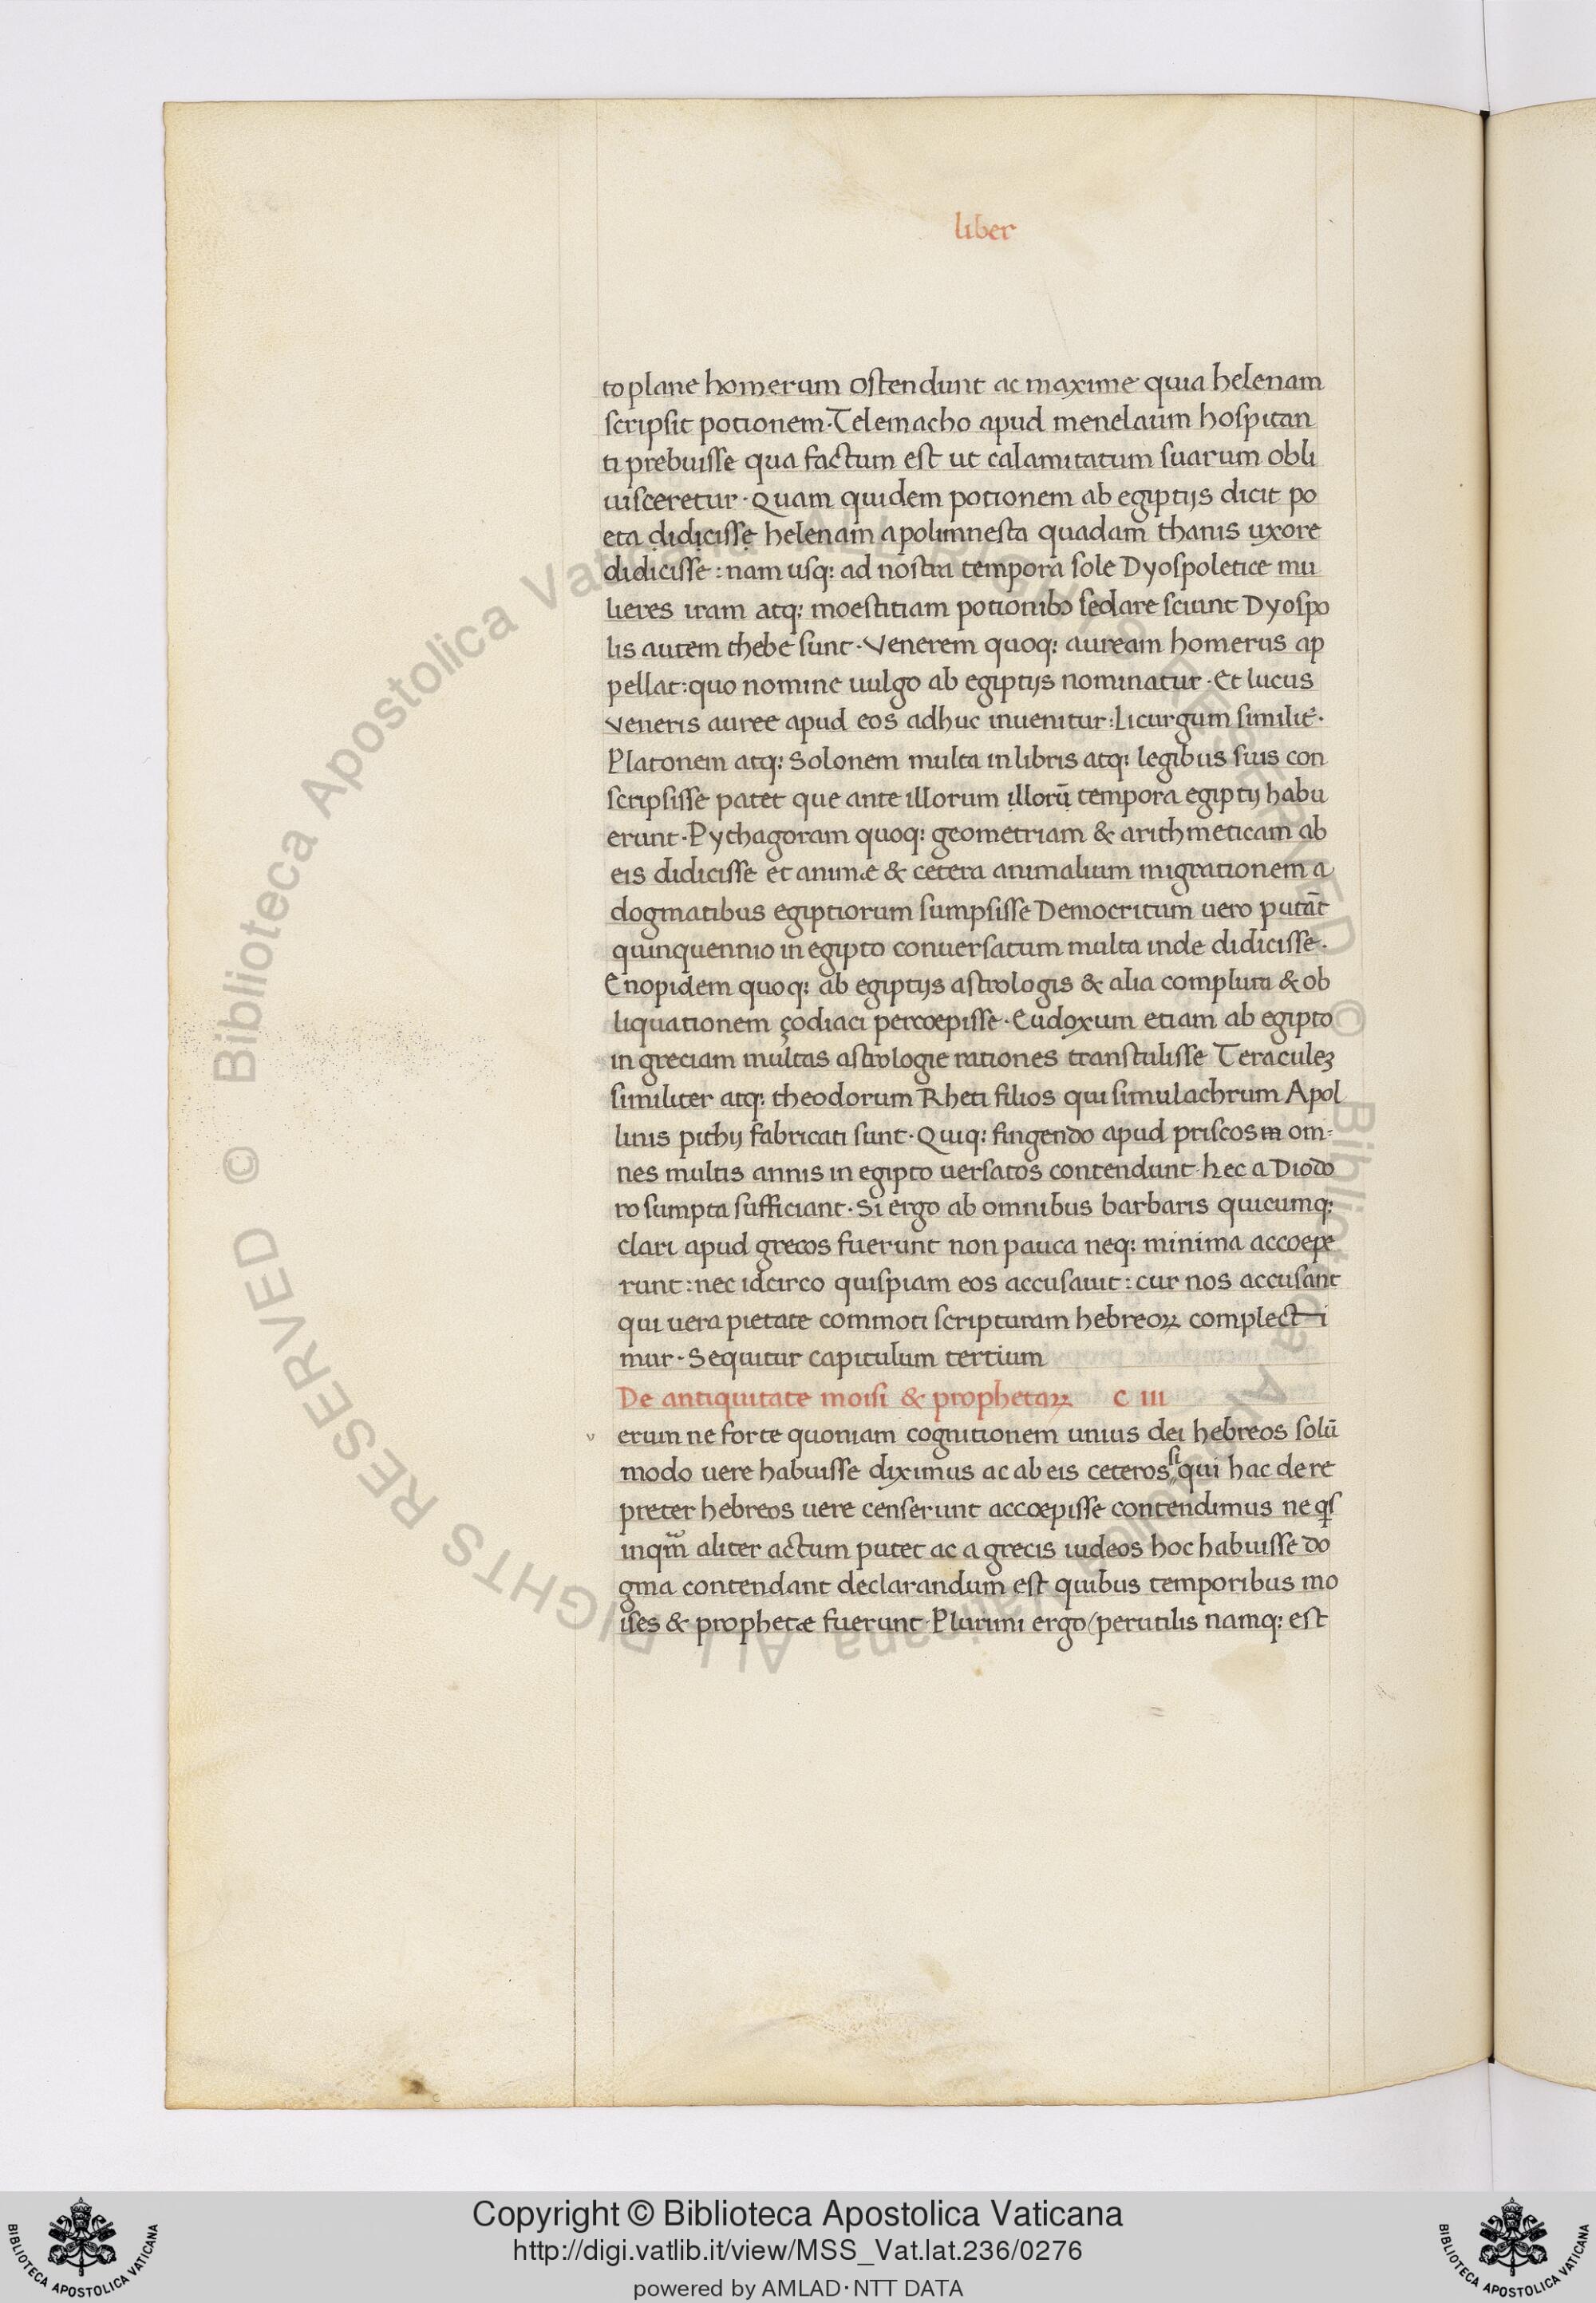 liber
to plane homerum ostendunt ac maxime quia helenam
scripsit potionem·Telemacho apud menelaum hospitan
ti prebuisse qua factum est ut calamitatum suarum obli
uisceretur·Quam quidem potionem ab egiptijs dicit po
eta didicisse helenam apolimnesta quadam thanis uxore
didicisse:nam usq: ad nostra tempora sole Dyospoletice mu
lieres iram atq: moestitiam potionibꝰ sedare sciunt Dyospo
lis autem thebe sunt·Venerem quoq: auream homerus ap
pellat:quo nomine uulgo ab egiptijs nominatur·Et lucus
veneris auree apud eos adhuc inuenitur:Licurgum similit̄·
Platonem atq: Solonem multa in libris atq: legibus suis con
scripsisse patet que ante illorum illorū tempora egiptij habu
erunt·Pythagoram quoq: geometriam & arithmeticam ab
eis didicisse et animæ & cetera animalium migrationem a
dogmatibus egiptiorum sumpsisse Democritum uero putāt
quinquennio in egipto conuersatum multa inde didicisse·
Enopidem quoq: ab egiptijs astrologis & alia complura & ob
liquationem çodiaci percoepisse·Eudoxum etiam ab egipto
in greciam multas astrologie rationes transtulisse Teraculeꝫ
similiter atq: theodorum Rheti filios qui simulachrum Apol
linis pithij fabricati sunt·Quiq: fingendo apud priscos in om=
nes multis annis in egipto uersatos contendunt·hec a Diodo
ro sumpta sufficiant·Si ergo ab omnibus barbaris quicumq:
clari apud grecos fuerunt non pauca neq: minima accoepe
runt:nec idcirco quispiam eos accusauit:cur nos accusant
qui uera pietate commoti scripturam hebreoꝝ complecti
mur·Sequitur capitulum tertium
De antiquitate moisi & prophetaꝝ C III
v erum ne forte quoniam cognitionem unius dei hebreos solū
modo uere habuisse diximus ac ab eis ceteros si qui hac de re
preter hebreos uere censerunt accoepisse contendimus ne qͥs
inqm̄ aliter actum putet ac a grecis iudeos hoc habuisse do
gma contendant declarandum est quibus temporibus mo
ises & prophetæ fuerunt·Plurimi ergo (perutilis namq: est
Copyright © Biblioteca Apostolica Vaticana
http://digi.vatlib.it/view/MSS_Vat.lat.236/0276
powered by AMLAD·NTT DATA
© Biblioteca Apostolica Vaticana ALL RIGHTS RESERVED © Biblioteca Apostolica Vaticana ALL RIGHTS RESERVED
BIBLIOTECA APOSTOLICA VATICANA
BIBLIOTECA APOSTOLICA VATICANA